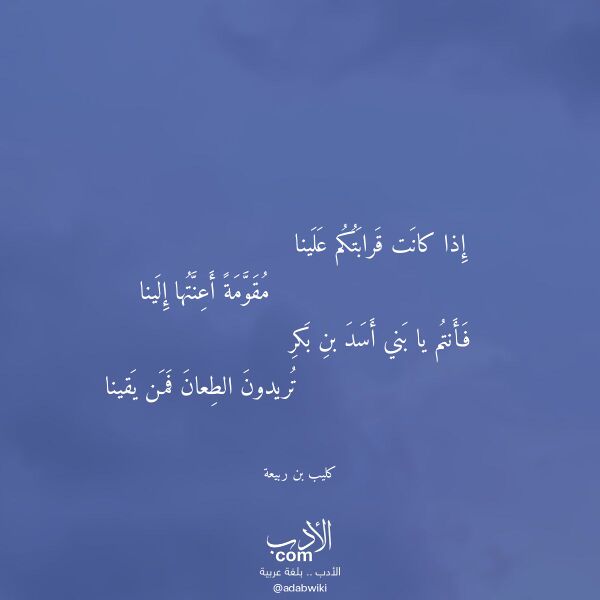 إِذا كانَت قَرابَتُكُم عَلَينا
مُقَوَّمَةً أَعِنَّتُها إِلَينا
فَأَنتُم يا بَني أَسَدَ بنِ بَكرِ
تُريدونَ الطِعانَ فَمَن يَقينا
كليب بن ربيعة
الأدب
com
الأدب .. بلغة عربية
@adabwiki